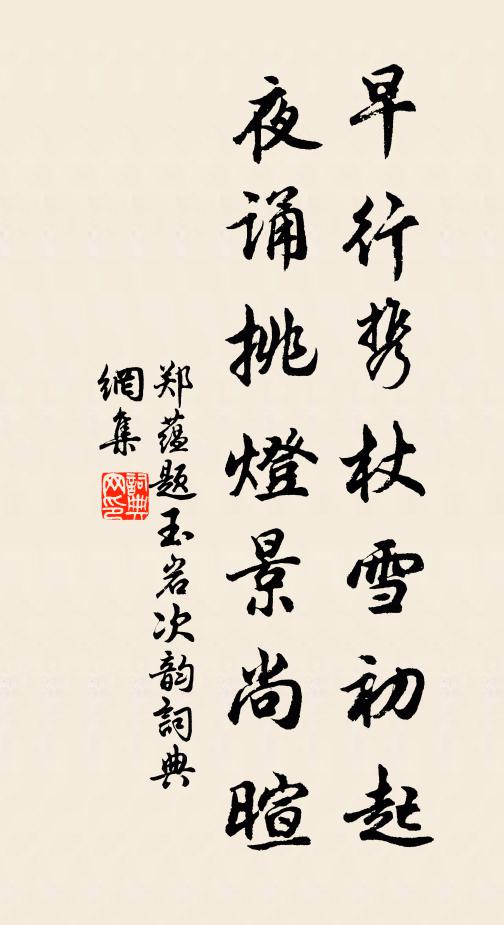 早行携杖雪初起
夜诵挑燈景尚暄
郑蕴题玉岩次韵詞典
網集
詞典网印